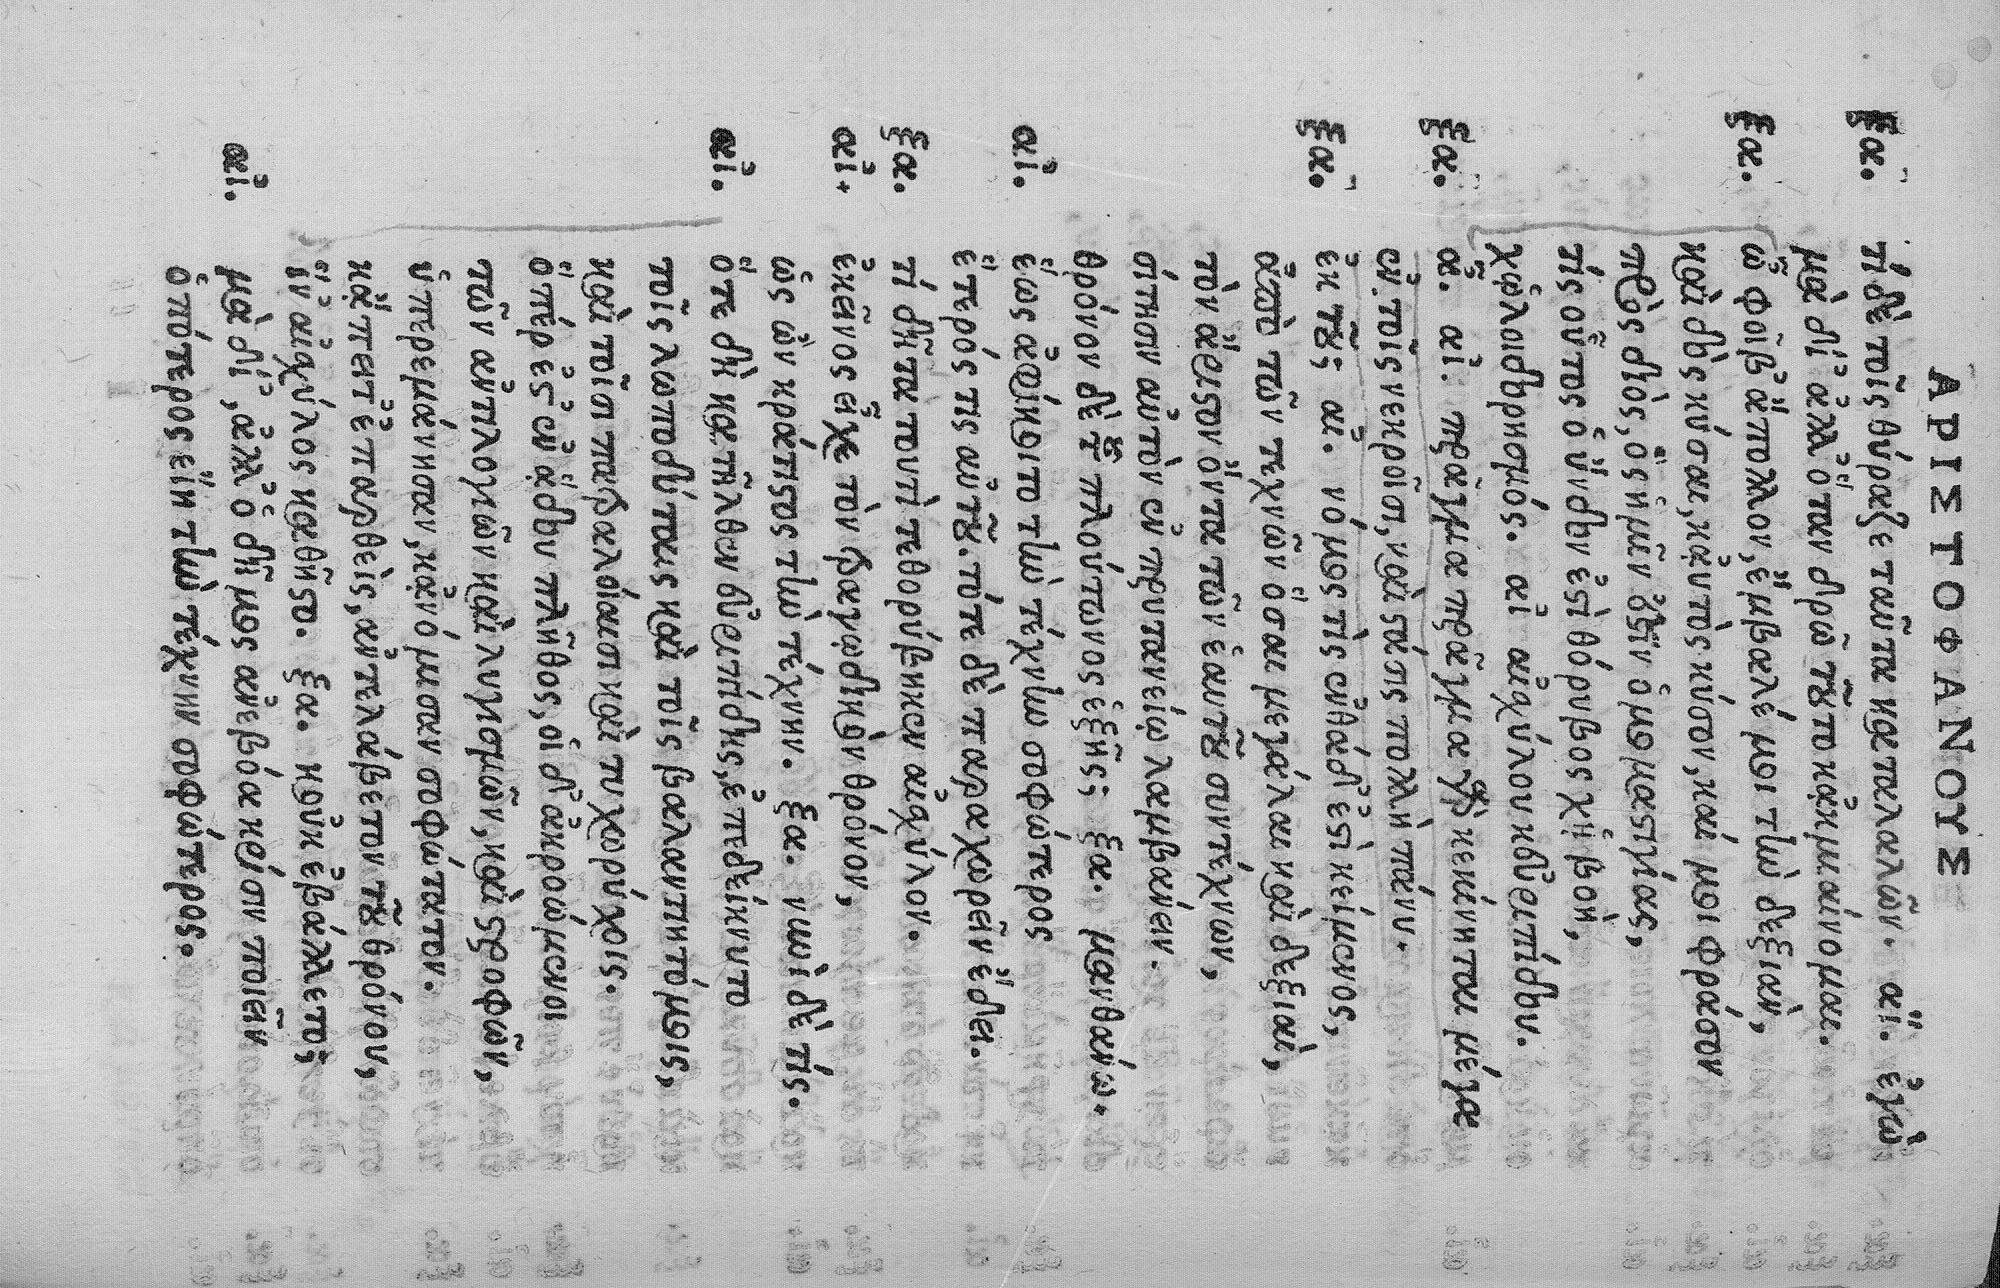 ΑΡΙΣΤΟΦΑΝΟΥΣ
ξα. τί δὲ τοῖς θύραζε ταῦτα καταλαλῶν. αἴ. ἐγὼ
μὰ δί' ἀλλ' ὅταν δρῶ τοῦτο κἀκμιαίνομαι.
ξα. ὦ φοῖβ' ἄπολλον, ἔμβαλέ μοι τὴν δεξιὰν,
καὶ δὸς κύσαι, καὐτὸς κύσον, καί μοι φράσον
πρὸς διὸς, ὃς ἡμῖν ἐστὶν ὁμομαστιγίας.
τίς οὗτος οὕνδον ἐστὶ θόρυβος χἠ βοὴ,
χὠ λοιδορησμός. αἰ αἰσχύλου κεὐριπίδου.
ξα. ἆ. αἰ. πρᾶγμα πρᾶγμα γὰρ κεκίνηται μέγα
ἐν τοῖς νεκροῖσι, καὶ στάσις πολλὴ πάνυ.
ξα. ἐκ τοῦ; αἰ. νόμος τίς ἐνθάδ' ἐστὶ κείμενος,
ἀπὸ τῶν τεχνῶν ὅσαι μεγάλαι καὶ δεξιαὶ,
τὸν ἄριστον ὄντα τῶν ἑαυτοῦ συντέχνων,
σίτησιν αὐτὸν ἐν πρυτανείῳ λαμβάνειν.
θρόνον δὲ τοῦ πλούτωνος ἑξῆς; ξα. μανθάνω.
αἰ. ἕως ἀφίκοιτο τὴν τέχνην σοφώτερος
ἕτερός τις αὐτοῦ. τότε δὲ παραχωρεῖν ἔδει.
ξα. τί δῆτα τουτὶ τεθορύβηκεν αἰσχύλον.
αἰ. ἐκεῖνος εἶχε τὸν τραγῳδικὸν θρόνον,
ὡς ὢν κράτιστος τὴν τέχνην. ξα. νυνὶ δὲ τίς.
αἰ. ὅτε δὴ κατῆλθεν εὐριπίδης, ἐπεδείκνυτο
τοῖς λωποδύταις καὶ τοῖς βαλαντιητόμοις,
καὶ τοῖσι πατραλοίαισι καὶ τυχωρύχοις.
ὅπέρ ἐστ' ἐν ᾅδου πλῆθος, οἱ δ' ἀκροώμενοι
τῶν ἀντιλογιῶν καὶ λυγισμῶν, καὶ στροφῶν,
ὑπερεμάνησαν, κἀνόμισαν σοφώτατον.
κᾆπειτ' ἐπαρθεὶς, ἀντελάβετο τοῦ θρόνου,
ἵν' αἰσχύλος καθῆστο. ξα. κοὐκ ἐβάλλετο;
αἰ. μὰ δί', ἀλλ' ὁ δῆμος ἀνεβόα κρίσιν ποιεῖν
ὁπότερος εἴη τὴν τέχνην σοφώτερος.